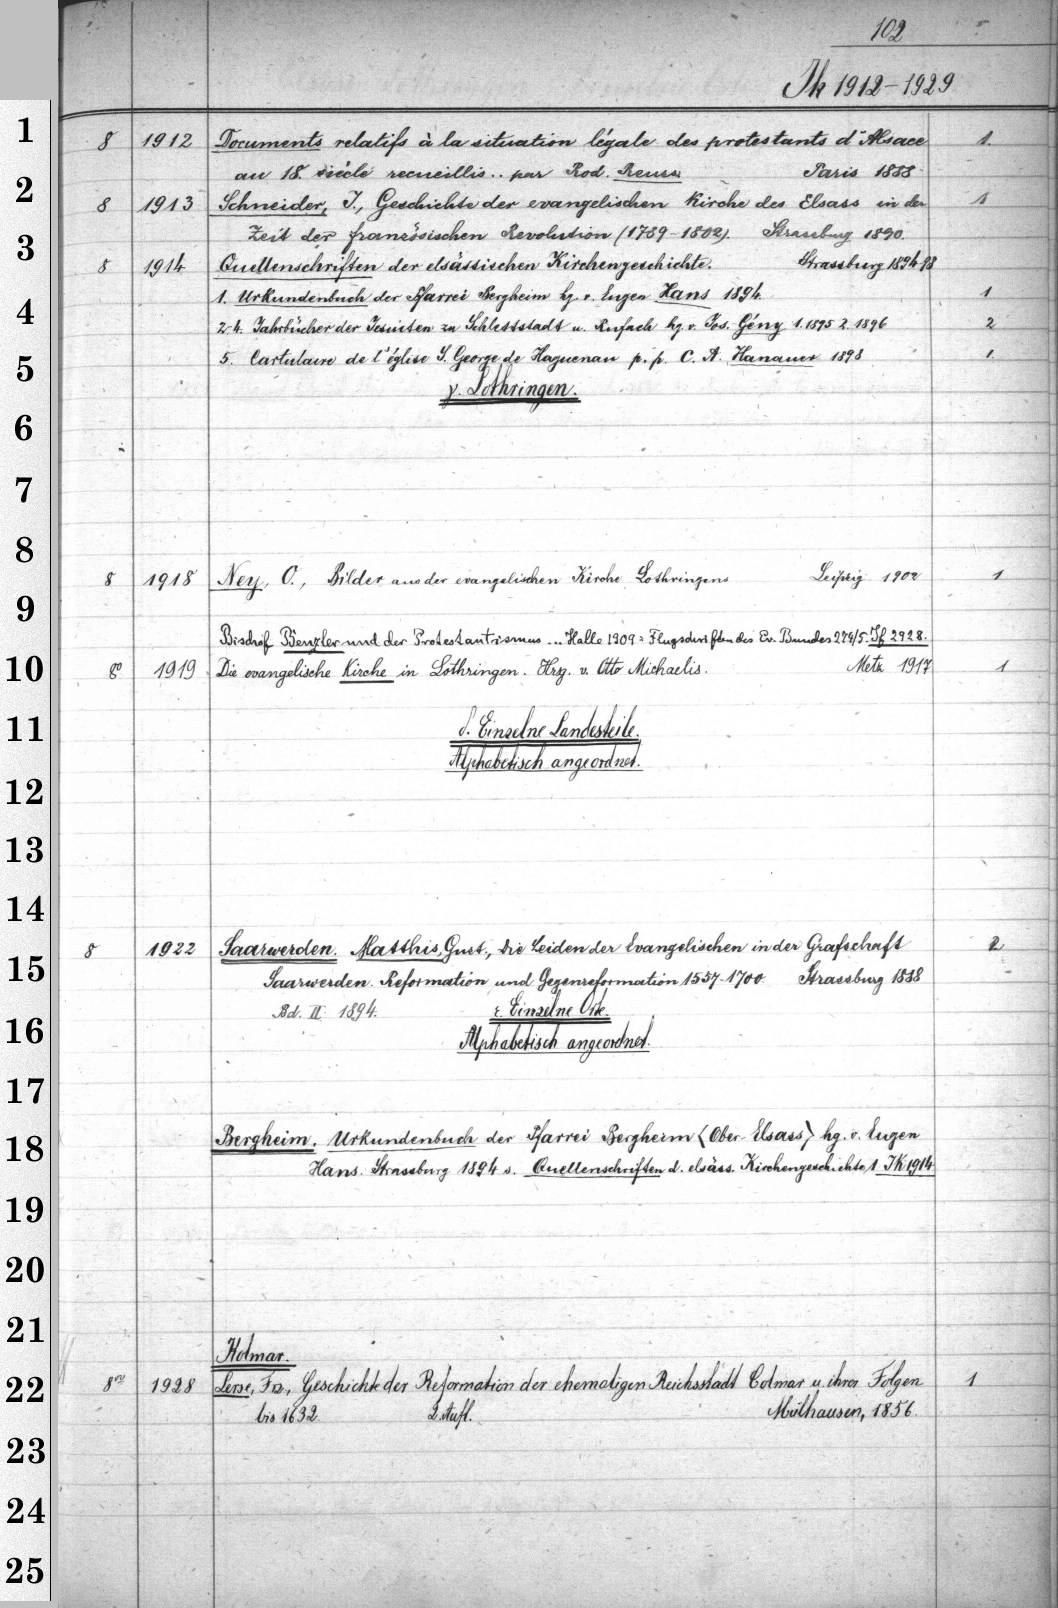 102
Jk 1912-1929
8 1912 Documents relatifs à la situation légale des protestants d'Alsace 1.
au 18. siécle recueillis.. par Rod. Reuss Paris 1888
8 1913 Schneider, J., Geschichte der evangelischen Kirche des Elsass in der 1
Zeit der französischen Revolution (1789-1802). Strassburg 1890.
8 1914 Quellenschriften der elsässischen Kirchengeschichte. Strassburg 1894-98
1. Urkundenbuch der Pfarrei Bergheim hg. v. Eugen Hans 1894. 1
2-4. Jahrbücher der Jesuiten zu Schlettstadt u. Rufach hg. v. Jos. Gény 1. 1895 2. 1896 2
5. Cartulaire de l'église S. George de Haguenau p. p. C. A. Hanauer 1898 1.
γ. Lothringen.
8 1918 Ney, O., Bilder aus der evangelischen Kirche Lothringens Leipzig 1902 1
Bischof Benzler und der Protestantismus ... Halle 1909 = Flugschriften des Ev. Bundes 274/5. Jf 2928.
8° 1919 Die evangelische Kirche in Lothringen. Hrsg. v. Otto Michaelis. Metz 1917 1
δ. Einzelne Landesteile.
Alphabetisch angeordnet.
8 1922 Saarwerden. Matthis, Gust., Die Leiden der Evangelischen in der Grafschaft 2
Saarwerden. Reformation und Gegenreformation 1557-1700. Strassburg 1888
Bd. II 1894.
ε. Einzelne Orte.
Alphabetisch angeordnet.
Bergheim. Urkundenbuch der Pfarrei Bergheim (Ober Elsass) hg. v. Eugen
Hans. Strassburg 1894 s. Quellenschriften d. elsäss. Kirchengeschichte, 1 JK 1914
Kolmar.
8vo 1928 Lerse, Frz., Geschichte der Reformation der ehemaligen Reichsstadt Colmar u. ihrer Folgen 1
bis 1632. 2. Aufl. Mülhausen, 1856.
1
2
3
4
5
6
7
8
9
10
11
12
13
14
15
16
17
18
19
20
21
22
23
24
25